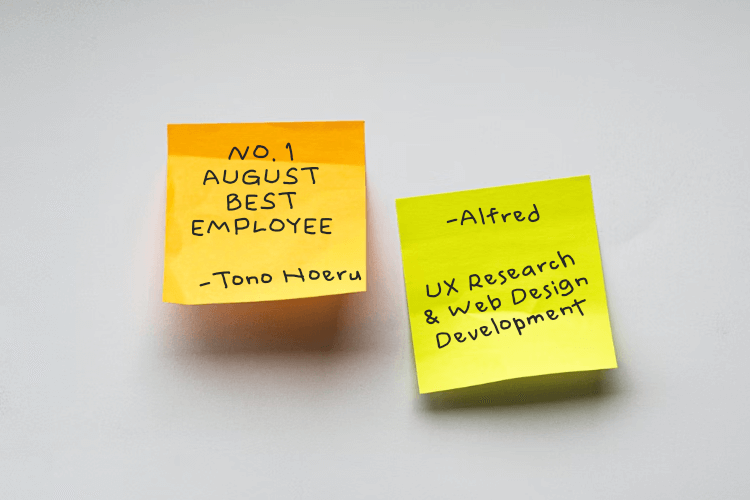 NO. 1
AUGUST
BEST
EMPLOYEE
-Tono Hoeru
-Alfred
UX Research
& Web Design
Development